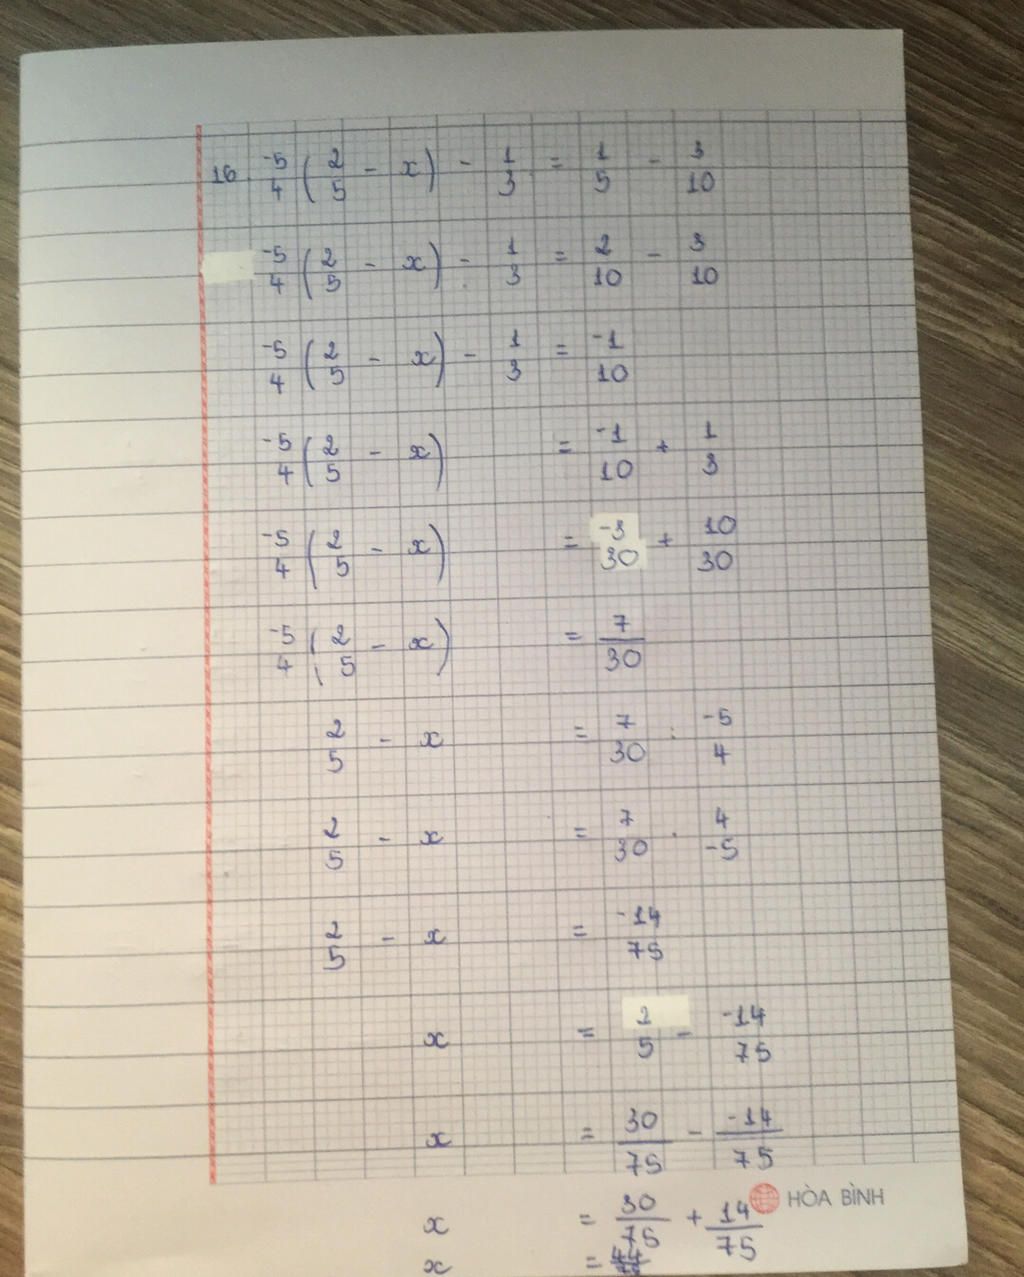 16. -5/4 (2/5 - x) - 1/3 = 1/5 - 3/10
-5/4 (2/5 - x) - 1/3 = 2/10 - 3/10
-5/4 (2/5 - x) - 1/3 = -1/10
-5/4 (2/5 - x) = -1/10 + 1/3
-5/4 (2/5 - x) = -3/30 + 10/30
-5/4 (2/5 - x) = 7/30
2/5 - x = 7/30 : -5/4
2/5 - x = 7/30 . 4/-5
2/5 - x = -14/75
x = 2/5 - -14/75
x = 30/75 - -14/75
HÒA BÌNH
x = 30/75 + 14/75
x =